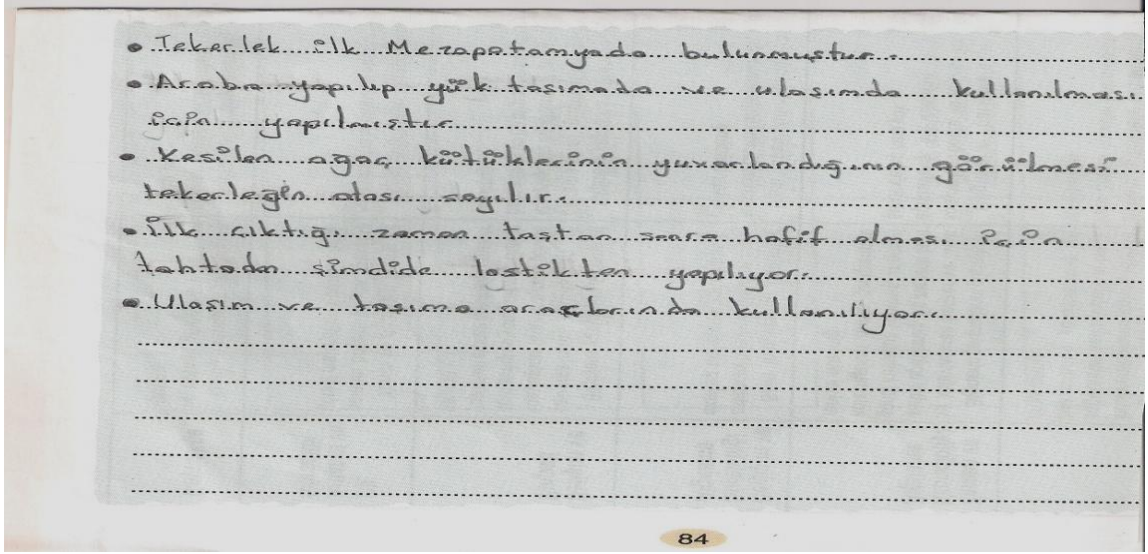 • Tekerlek ilk Mezapotamyada bulunmuştur.
• Araba yapılıp yük taşımada ve ulaşımda kullanılması
için yapılmıştır.
• Kesilen ağaç kütüklerinin yuvarlandığının görülmesi
tekerleğin atası sayılır.
• İlk çıktığı zaman taştan sonra hafif olması için
tahtadan şimdide lastikten yapılıyor.
• Ulaşım ve taşıma araçlarında kullanılıyor.
84